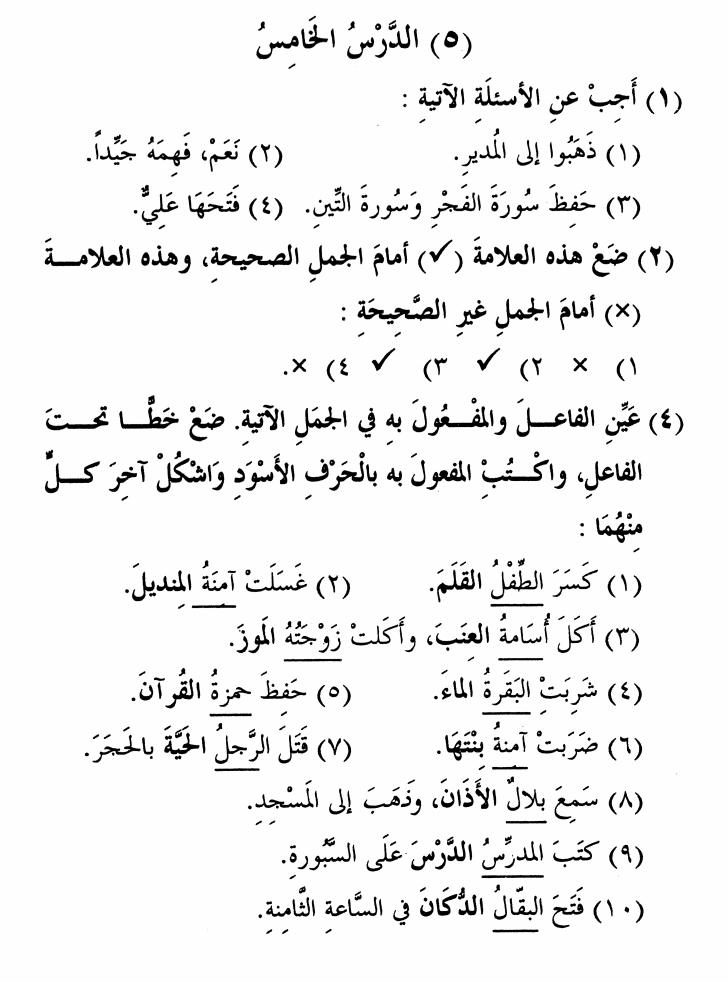 (٥) الدَّرْسُ الخَامِسُ
(١) أَجِبْ عنِ الأسئلَةِ الآتيةِ :
(١) ذَهَبُوا إلى المُديرِ. (٢) نَعَمْ، فَهِمَهُ جَيِّداً.
(٣) حَفِظَ سُورَةَ الفَجْرِ وَسُورةَ التِّينِ. (٤) فَتَحَهَا عَلِيٌّ.
(٢) ضَعْ هذه العلامةَ (✓) أمامَ الجملِ الصحيحةِ، وهذه العلامـــةَ
(×) أمامَ الجملِ غيرِ الصَّحِيحَةِ :
١) × ٢) ✓ ٣) ✓ ٤) ×.
(٤) عَيِّنِ الفاعـــلَ والمفْـــعُولَ بهِ في الجمَلِ الآتيةِ. ضَعْ خَطًّـــا تحـــتَ
الفاعلِ، واكْـــتُبْ المفعولَ به بالْحَرْفِ الأَسْوَدِ وَاشْكُلْ آخِرَ كـــلٍّ
مِنْهُمَا :
(١) كَسَرَ الطِّفْلُ القَلَمَ. (٢) غَسَلَتْ آمِنَةُ المِنديلَ.
(٣) أَكَلَ أُسَامةُ العِنَبَ، وأَكَلتْ زَوْجَتُهُ المَوزَ.
(٤) شَرِبَتْ البَقَرةُ الماءَ. (٥) حَفِظَ حمزةُ القُرآنَ.
(٦) ضَرَبتْ آمنةُ بِنْتَهَا. (٧) قَتَلَ الرَّجلُ الحَيَّةَ بالحَجَرَ.
(٨) سَمِعَ بلالٌ الأَذَانَ، وذَهَبَ إلى المَسْجدِ.
(٩) كتَبَ المدرِّسُ الدَّرْسَ عَلَى السَّبُّورةِ.
(١٠) فَتَحَ البقّالُ الدُّكَانَ في السَّاعةِ الثَّامنةِ.